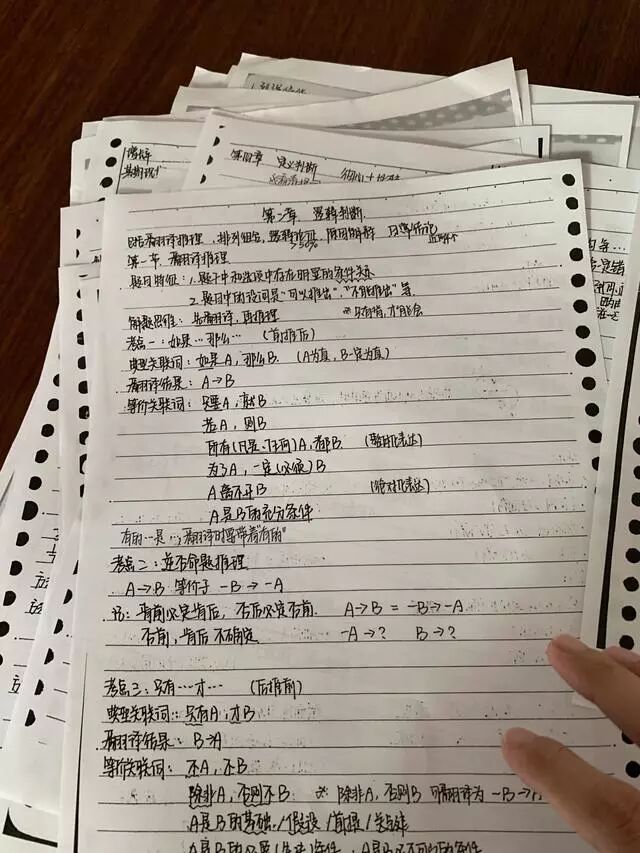 第四章 定义判断
第二章 逻辑判断
包括翻译推理、排列组合、逻辑论证、原因解释、日常结论
>50%
第一节 翻译推理
题目特征:1.题干中和选项中存在明显的条件关系
2.题目中的设问是"可以推出"、"不能推出"等
解题思维:先翻译,再推理
考点一:如果…那么… (前推后)
典型关联词:如果A,那么B (A为真,B一定为真)
翻译结果:A→B
等价关联词:只要A,就B
若A,则B
所有(凡是、任何)A,都B (绝对化表达)
为了A,一定(必须)B
A离不开B (绝对化表达)
A是B的充分条件
有的…是…,翻译时要带着"有的"
考点二:逆否命题推理
A→B 等价于 -B→-A
记:肯前必定肯后,否后必定否前. A→B = -B→-A
否前,肯后 不确定 -A→? B→?
考点三:只有…才… (后推前)
典型关联词:只有A,才B
翻译结果:B→A
等价关联词:不A,不B
除非A,否则不B * 除非A,否则B 可翻译为 -B→
A是B的基础/假设/前提/关键